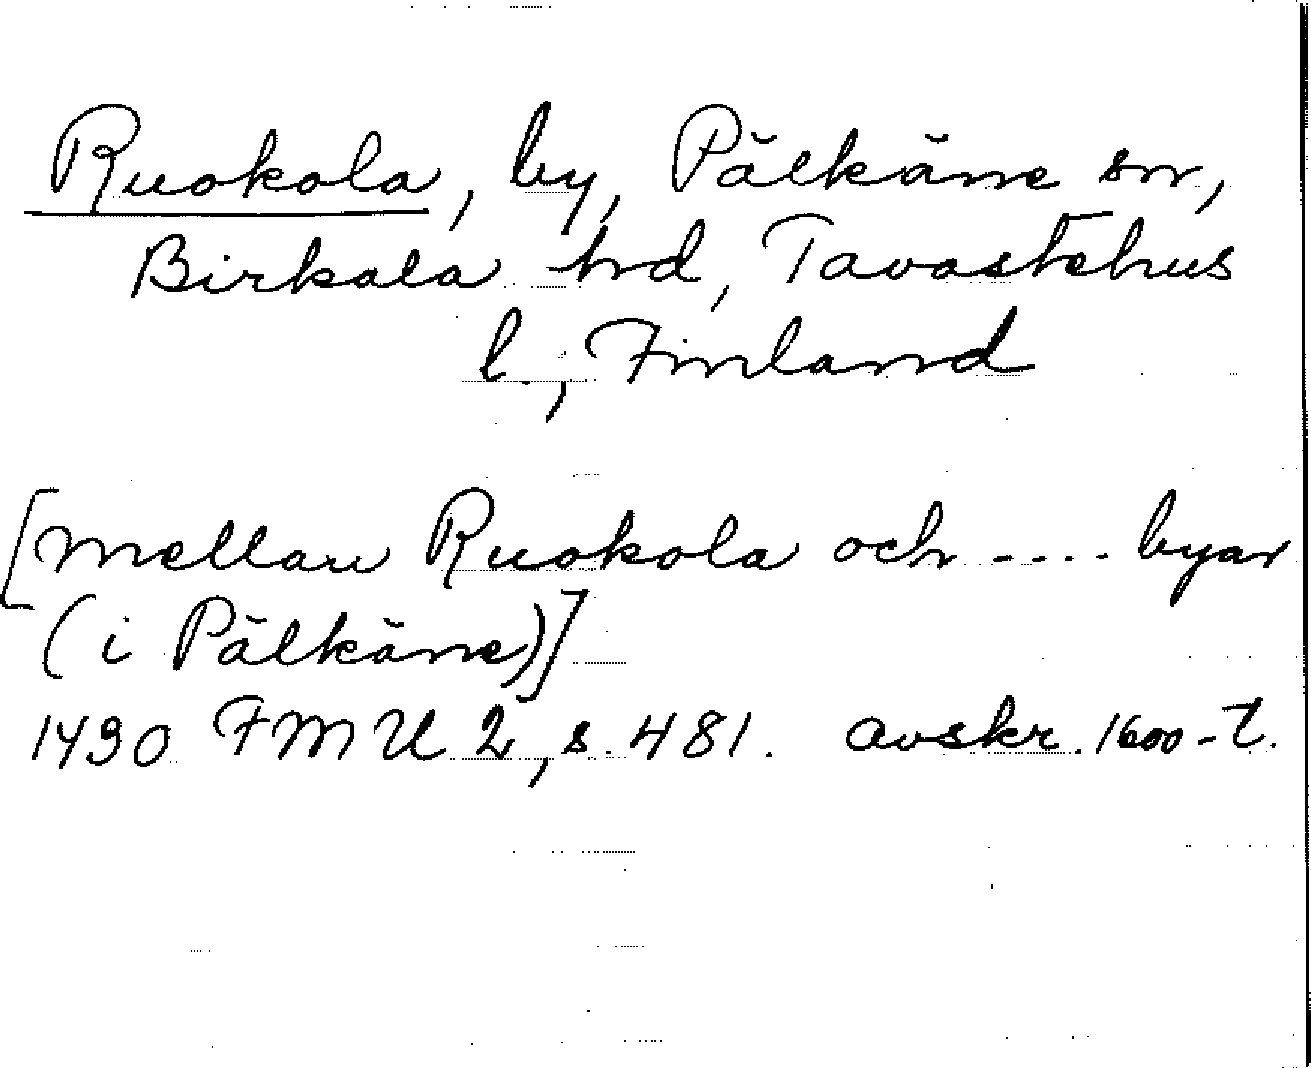 Ruokola, by, Pälkäne sn,
Birkala hd, Tavastehus
l., Finland
[mellan Ruokola och .... byar
(i Pälkäne)]
1430 FMU 2, s. 481. avskr. 1600-t.